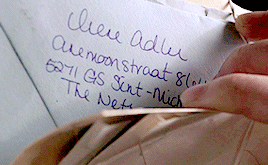 Irene Adler
Anemoonstraat 8
5271 GS Sint-Mich
The Neth